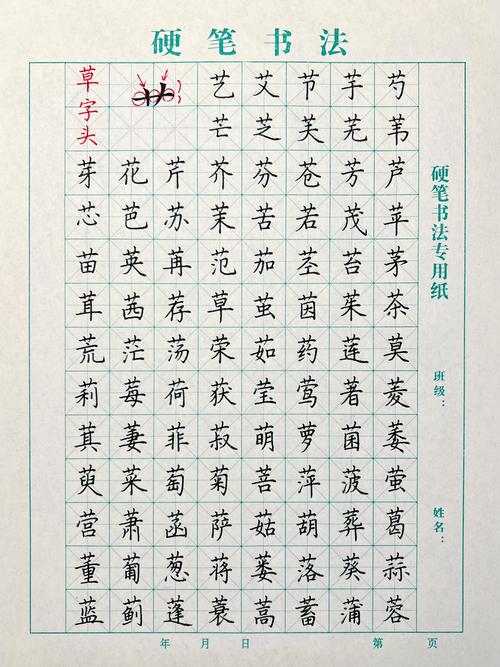 硬笔书法
草字头
艺艾节芋芍
芒芝芙芜苇
芽花芹芥芬苍芳芦
芯芭苏茉苦若茂苹
苗英苒范茄茎苔茅
茸茜荐草茧茵茱茶
荒茫荡荣茹药莲莫
莉莓荷获莹莺著菱
萁萋菲菽萌萝菌萎
萸菜萄菊菩萍菠萤
营萧菡萨菇葫葬葛
董葡葱蒋蒌落葵蒜
蓝蓟蓬蓑蒿蓄蒲蓉
硬笔书法专用纸
班级：
姓名：
年 月 日 第 页